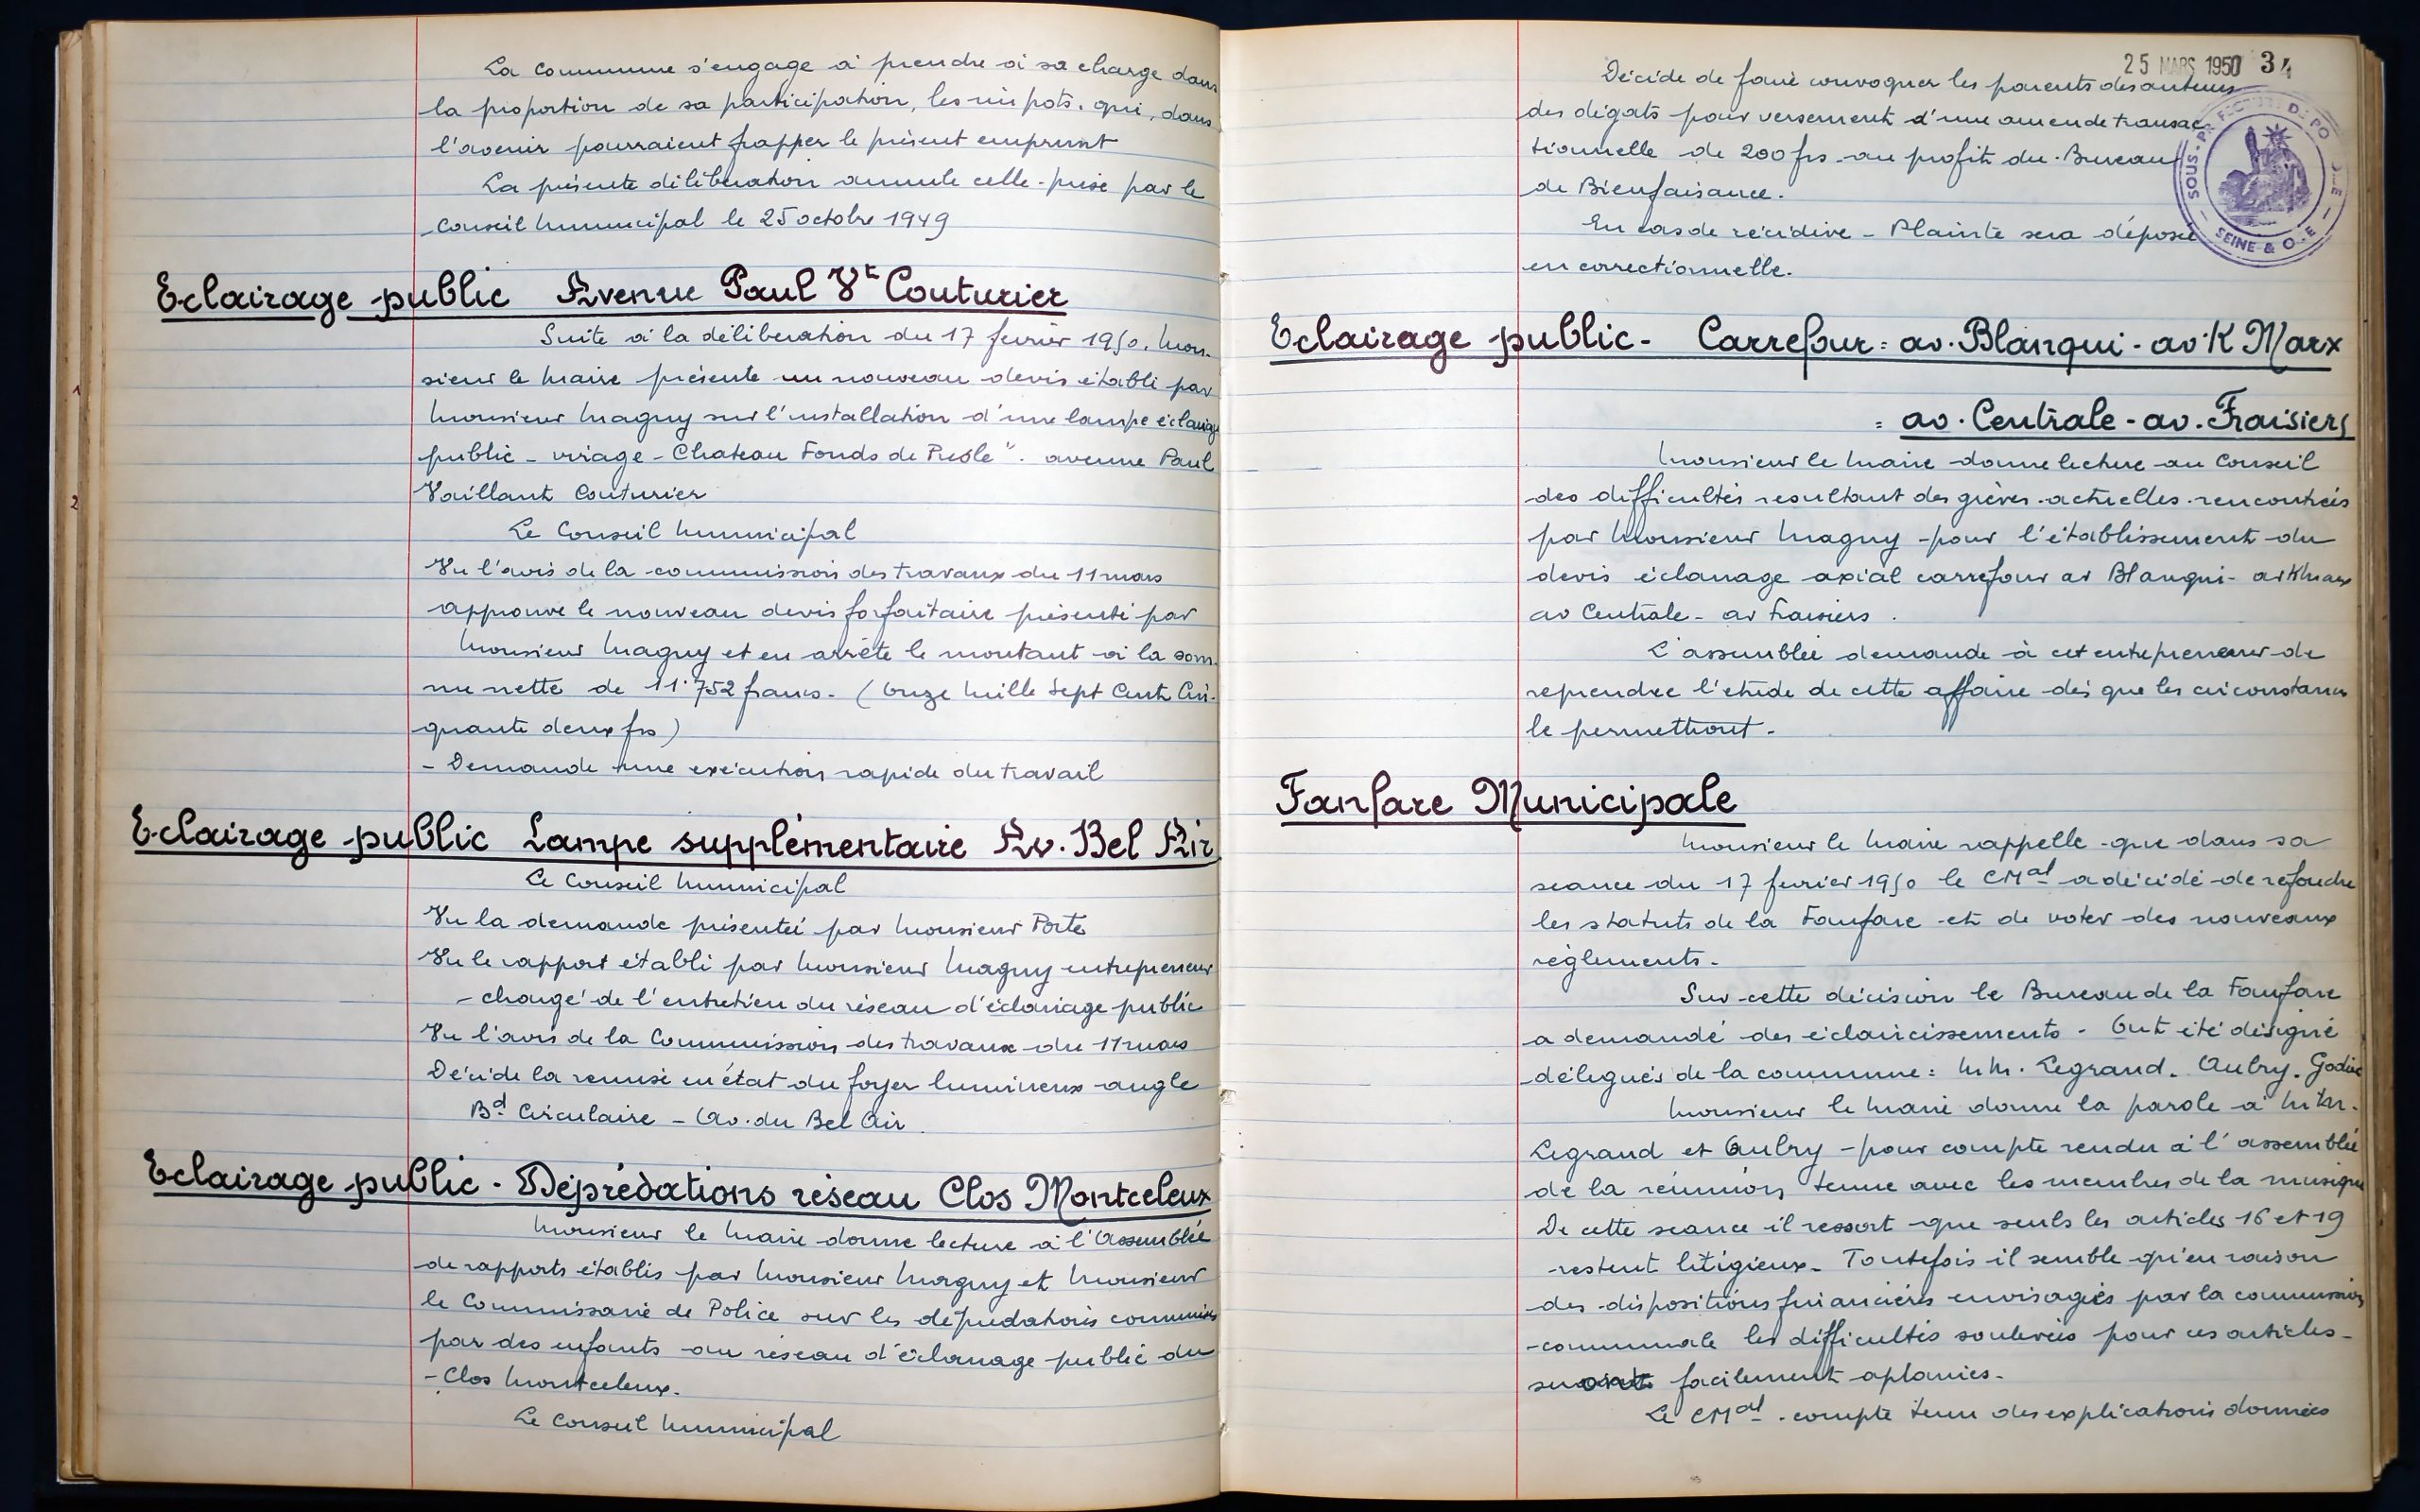 La commune s'engage à prendre à sa charge dans
la proportion de sa participation, les impots. qui, dans
l'avenir pourraient frapper le présent emprunt
La présente délibération annule celle prise par le
Conseil Municipal le 25 octobre 1949
Eclairage public Avenue Paul Vt Couturier
Suite à la délibération du 17 fevrier 1950. Mon-
sieur le Maire présente un nouveau devis établi par
Monsieur Magny sur l'installation d'une lampe éclairage
public - virage - Chateau Fonds de Piesle". avenue Paul
Vaillant Couturier
Le Conseil Municipal
Vu l'avis de la commission des travaux du 11 mars
approuve le nouveau devis forfaitaire présenté par
Monsieur Magny et en arrête le montant à la som-
me nette de 11.752 francs. (Onze Mille Sept Cent Cin-
quante deux frs)
- Demande une exécution rapide du travail
Eclairage public Lampe supplémentaire Av. Bel Air
Le Conseil Municipal
Vu la demande présentée par Monsieur Porte
Vu le rapport établi par Monsieur Magny entrepreneur
- chargé de l'entretien du réseau d'éclairage public
Vu l'avis de la Commission des travaux du 11 mars
Décide la remise en état du foyer lumineux angle
Bd Circulaire - Av. du Bel Air.
Eclairage public - Déprédations réseau Clos Montceleux
Monsieur le Maire donne lecture à l'Assemblée
de rapports établis par Monsieur Magny et Monsieur
le Commissaire de Police sur les déprédations commises
par des enfants au réseau d'éclairage public du
- Clos Montceleux.
Le Conseil Municipal
25 MARS 1950 34
Décide de faire convoquer les parents des auteurs
des dégats pour versement d'une amende transac
tionnelle de 200 frs au profit du Bureau
de Bienfaisance.
En cas de récidive - Plainte sera déposée
en correctionnelle.
SOUS-PREFECTURE DE PO SE
SEINE & O E
Eclairage public - Carrefour = av. Blanqui - av K Marx
= av. Centrale - av. Fraisiers
Monsieur le Maire donne lecture au Conseil
des difficultés resultant des grèves actuelles rencontrées
par Monsieur Magny pour l'établissement du
devis éclairage axial carrefour av Blanqui - av K Marx
av Centrale - av Fraisiers.
L'assemblée demande à cet entrepreneur de
reprendre l'étude de cette affaire dès que les circonstances
le permettront.
Fanfare Municipale
Monsieur le Maire rappelle que dans sa
seance du 17 fevrier 1950 le CMal a décidé de refondre
les statuts de la Fanfare et de voter des nouveaux
règlements.
Sur cette décision le Bureau de la Fanfare
a demandé des éclaircissements - Ont été désigné
délégués de la commune : MM. Legrand. Aubry. Godin
Monsieur le Maire donne la parole à MM.
Legrand et Aubry - pour compte rendu à l'assemblée
de la réunion tenue avec les membres de la musique
De cette seance il ressort que seuls les articles 16 et 19
restent litigieux. Toutefois il semble qu'en raison
des dispositions financières envisagées par la commission
communale les difficultés soulevées pour ces articles
seront facilement aplanies.
Le CMal. compte tenu des explications données